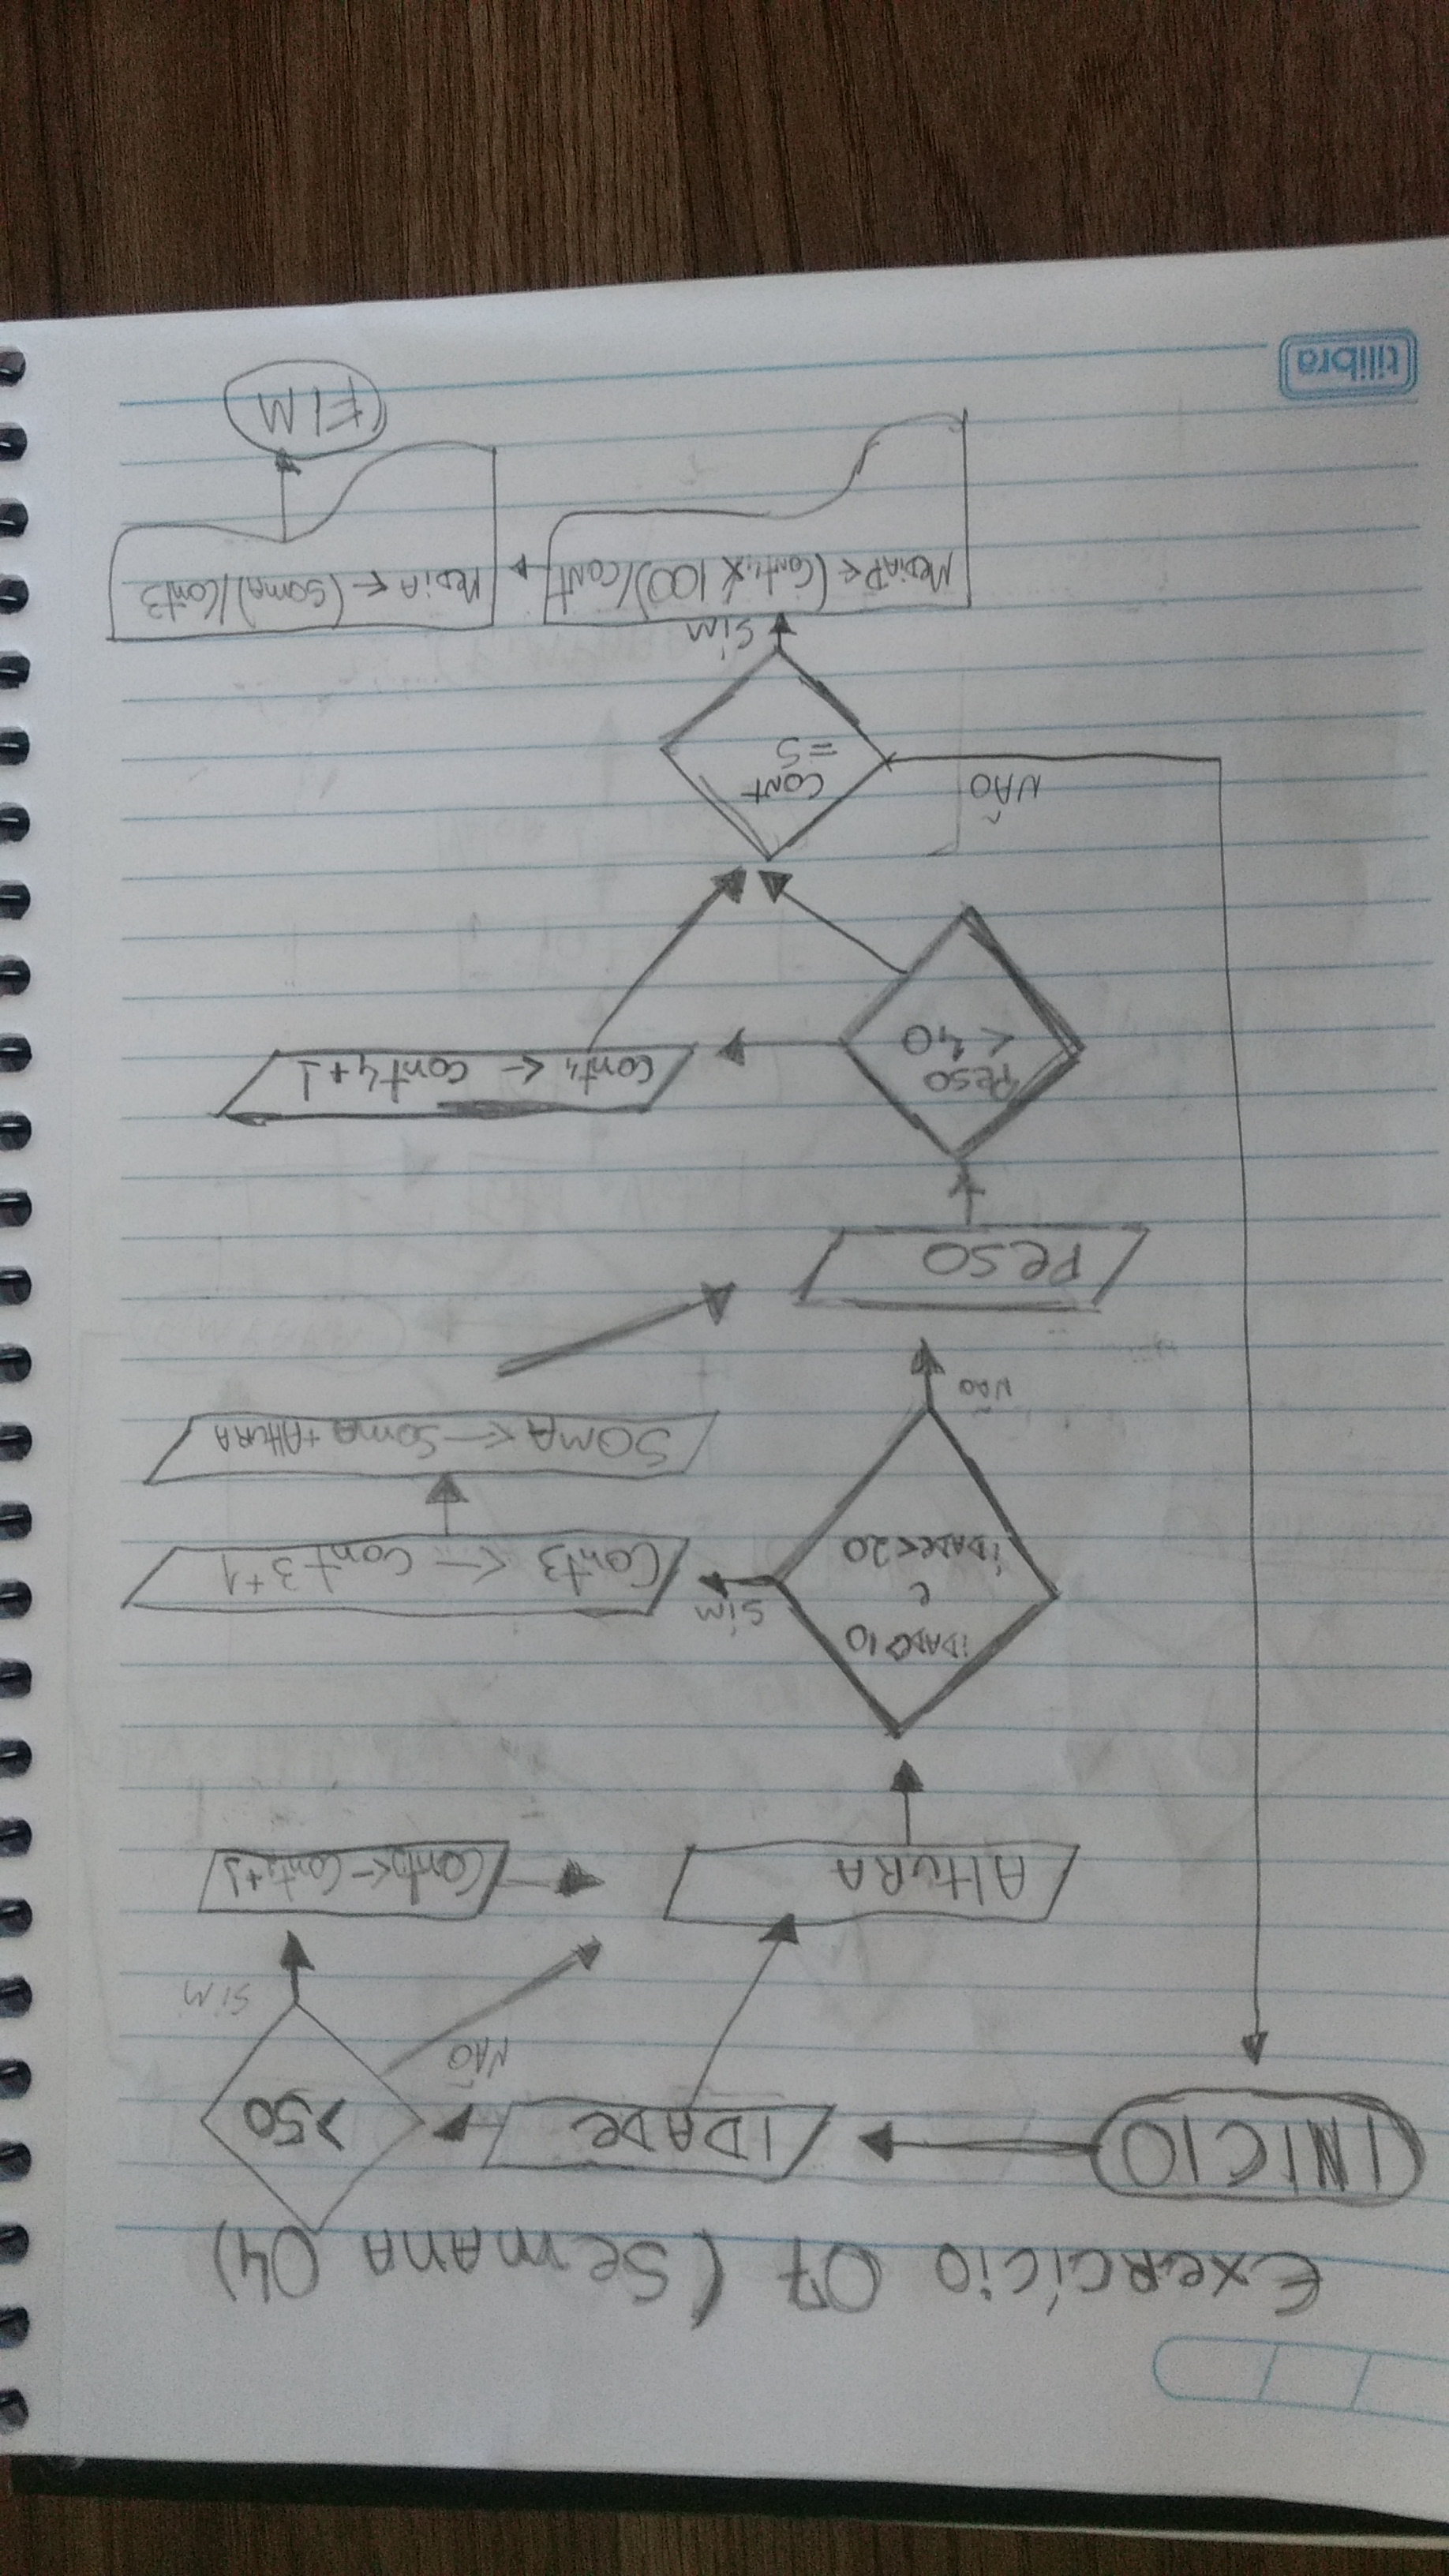 Exercício 07 (Semana 04)
INICIO
IDADe
>50
NÃO
SIM
AltuRA
Cont2<-Cont2+1
iDADe>10
e
iDADe<20
Sim
Cont3 <- Cont3+1
SOMA<-Soma+AltuRA
NÃO
Peso
Peso
<40
Cont4 <- cont4+1
NÃO
Cont
=5
Sim
MediaP<-(Cont4x100)/cont
MediA<-(Soma)/Cont3
FIM
tilibra